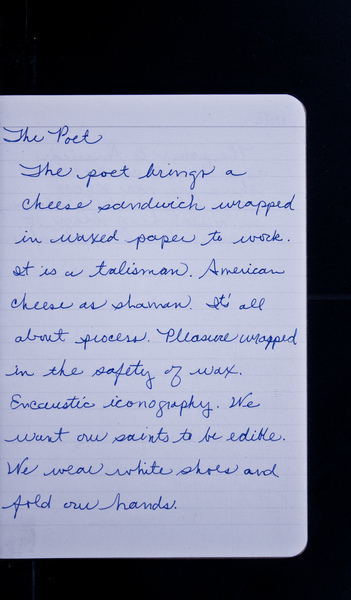 The Poet
The poet brings a
cheese sandwich wrapped
in waxed paper to work.
It is a talisman. American
cheese as shaman. It's all
about process. Pleasure wrapped
in the safety of wax.
Encaustic iconography. We
want our saints to be edible.
We wear white shoes and
fold our hands.